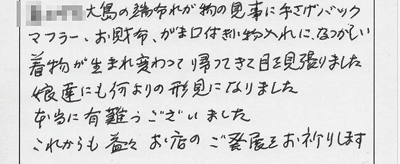 大島の端布れが物の見事に手さげバック
マフラー、お財布、がま口付き小物入れに、なつかしい
着物が生まれ変わって帰ってきて目を見張りました
娘達にも何よりの形見になりました
本当に有難うございました
これからも益々お店のご発展をお祈りします